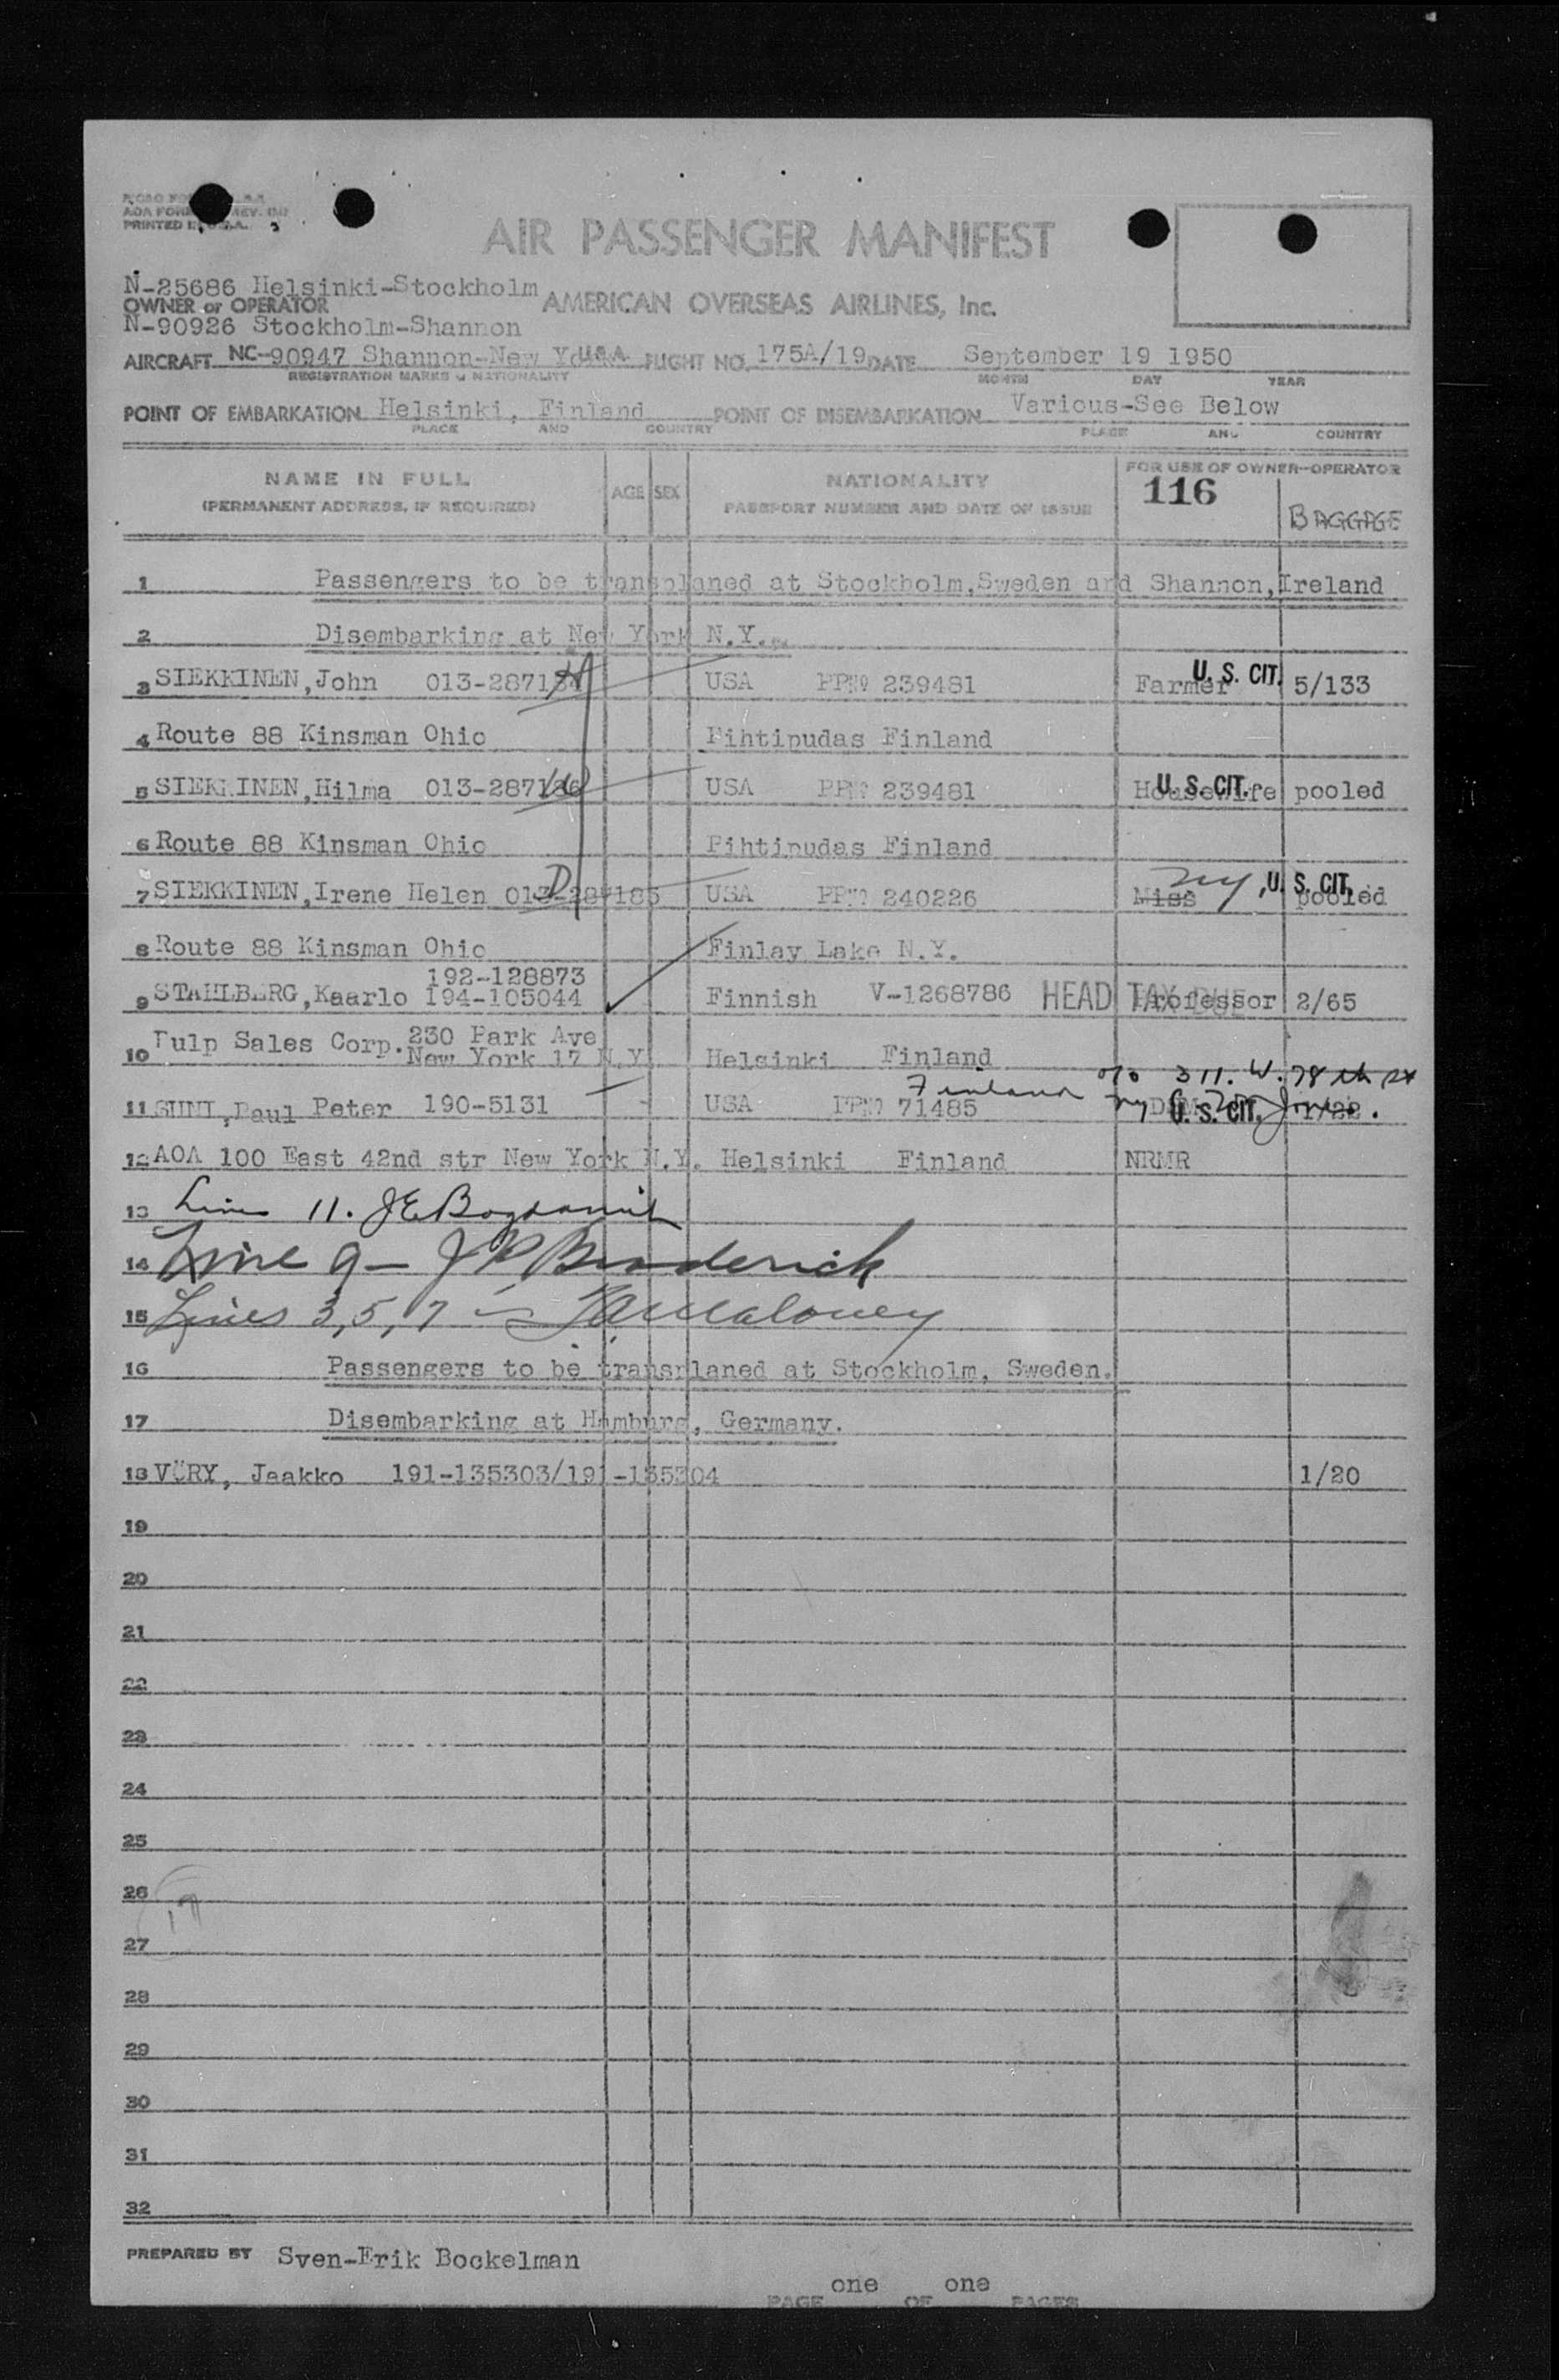 PRINTED IN U.S.A.
AIR PASSENGER MANIFEST
N-25686 Helsinki-Stockholm
OWNER or OPERATOR AMERICAN OVERSEAS AIRLINES, Inc.
N-90926 Stockholm-Shannon
AIRCRAFT NC-90947 Shannon-New York USA FLIGHT NO. 175A/19 DATE September 19 1950
REGISTRATION MARKS & NATIONALITY MONTH DAY YEAR
POINT OF EMBARKATION Helsinki, Finland POINT OF DISEMBARKATION Various-See Below
PLACE AND COUNTRY PLACE AND COUNTRY
NAME IN FULL AGE SEX NATIONALITY FOR USE OF OWNER-OPERATOR
(PERMANENT ADDRESS, IF REQUIRED) PASSPORT NUMBER AND DATE OF ISSUE 116 BAGGAGE
1 Passengers to be transplaned at Stockholm,Sweden and Shannon,Ireland
2 Disembarking at New York N.Y.
3 SIEKKINEN,John 013-287184 USA PPNo 239481 Farmer U. S. CIT. 5/133
4 Route 88 Kinsman Ohio Pihtipudas Finland
5 SIEKKINEN,Hilma 013-287186 USA PPNo 239481 Housewife U. S. CIT. pooled
6 Route 88 Kinsman Ohio Pihtipudas Finland
7 SIEKKINEN,Irene Helen 013-287185 USA PPNo 240226 Miss ny U. S. CIT. pooled
8 Route 88 Kinsman Ohio Finlay Lake N.Y.
192-128873
9 STAHLBERG,Kaarlo 194-105044 Finnish V-1268786 HEAD TAX DUE Professor 2/65
10 Pulp Sales Corp. 230 Park Ave
New York 17 N.Y. Helsinki Finland
Finland c/o 311. W. 78th st
11 SUNI,Paul Peter 190-5131 USA PPNo 71485 ny U. S. CIT. 1/22
12 AOA 100 East 42nd str New York N.Y. Helsinki Finland NRMR
13 Line 11.
14 Line 9 - J P Broderick
15 Lines 3,5,7 - Maloney
16 Passengers to be transplaned at Stockholm, Sweden.
17 Disembarking at Hamburg, Germany.
18 VÖRY, Jaakko 191-135303/191-135304 1/20
19
20
21
22
23
24
25
26
17
27
28
29
30
31
32
PREPARED BY Sven-Erik Bockelman
PAGE one OF one PAGES